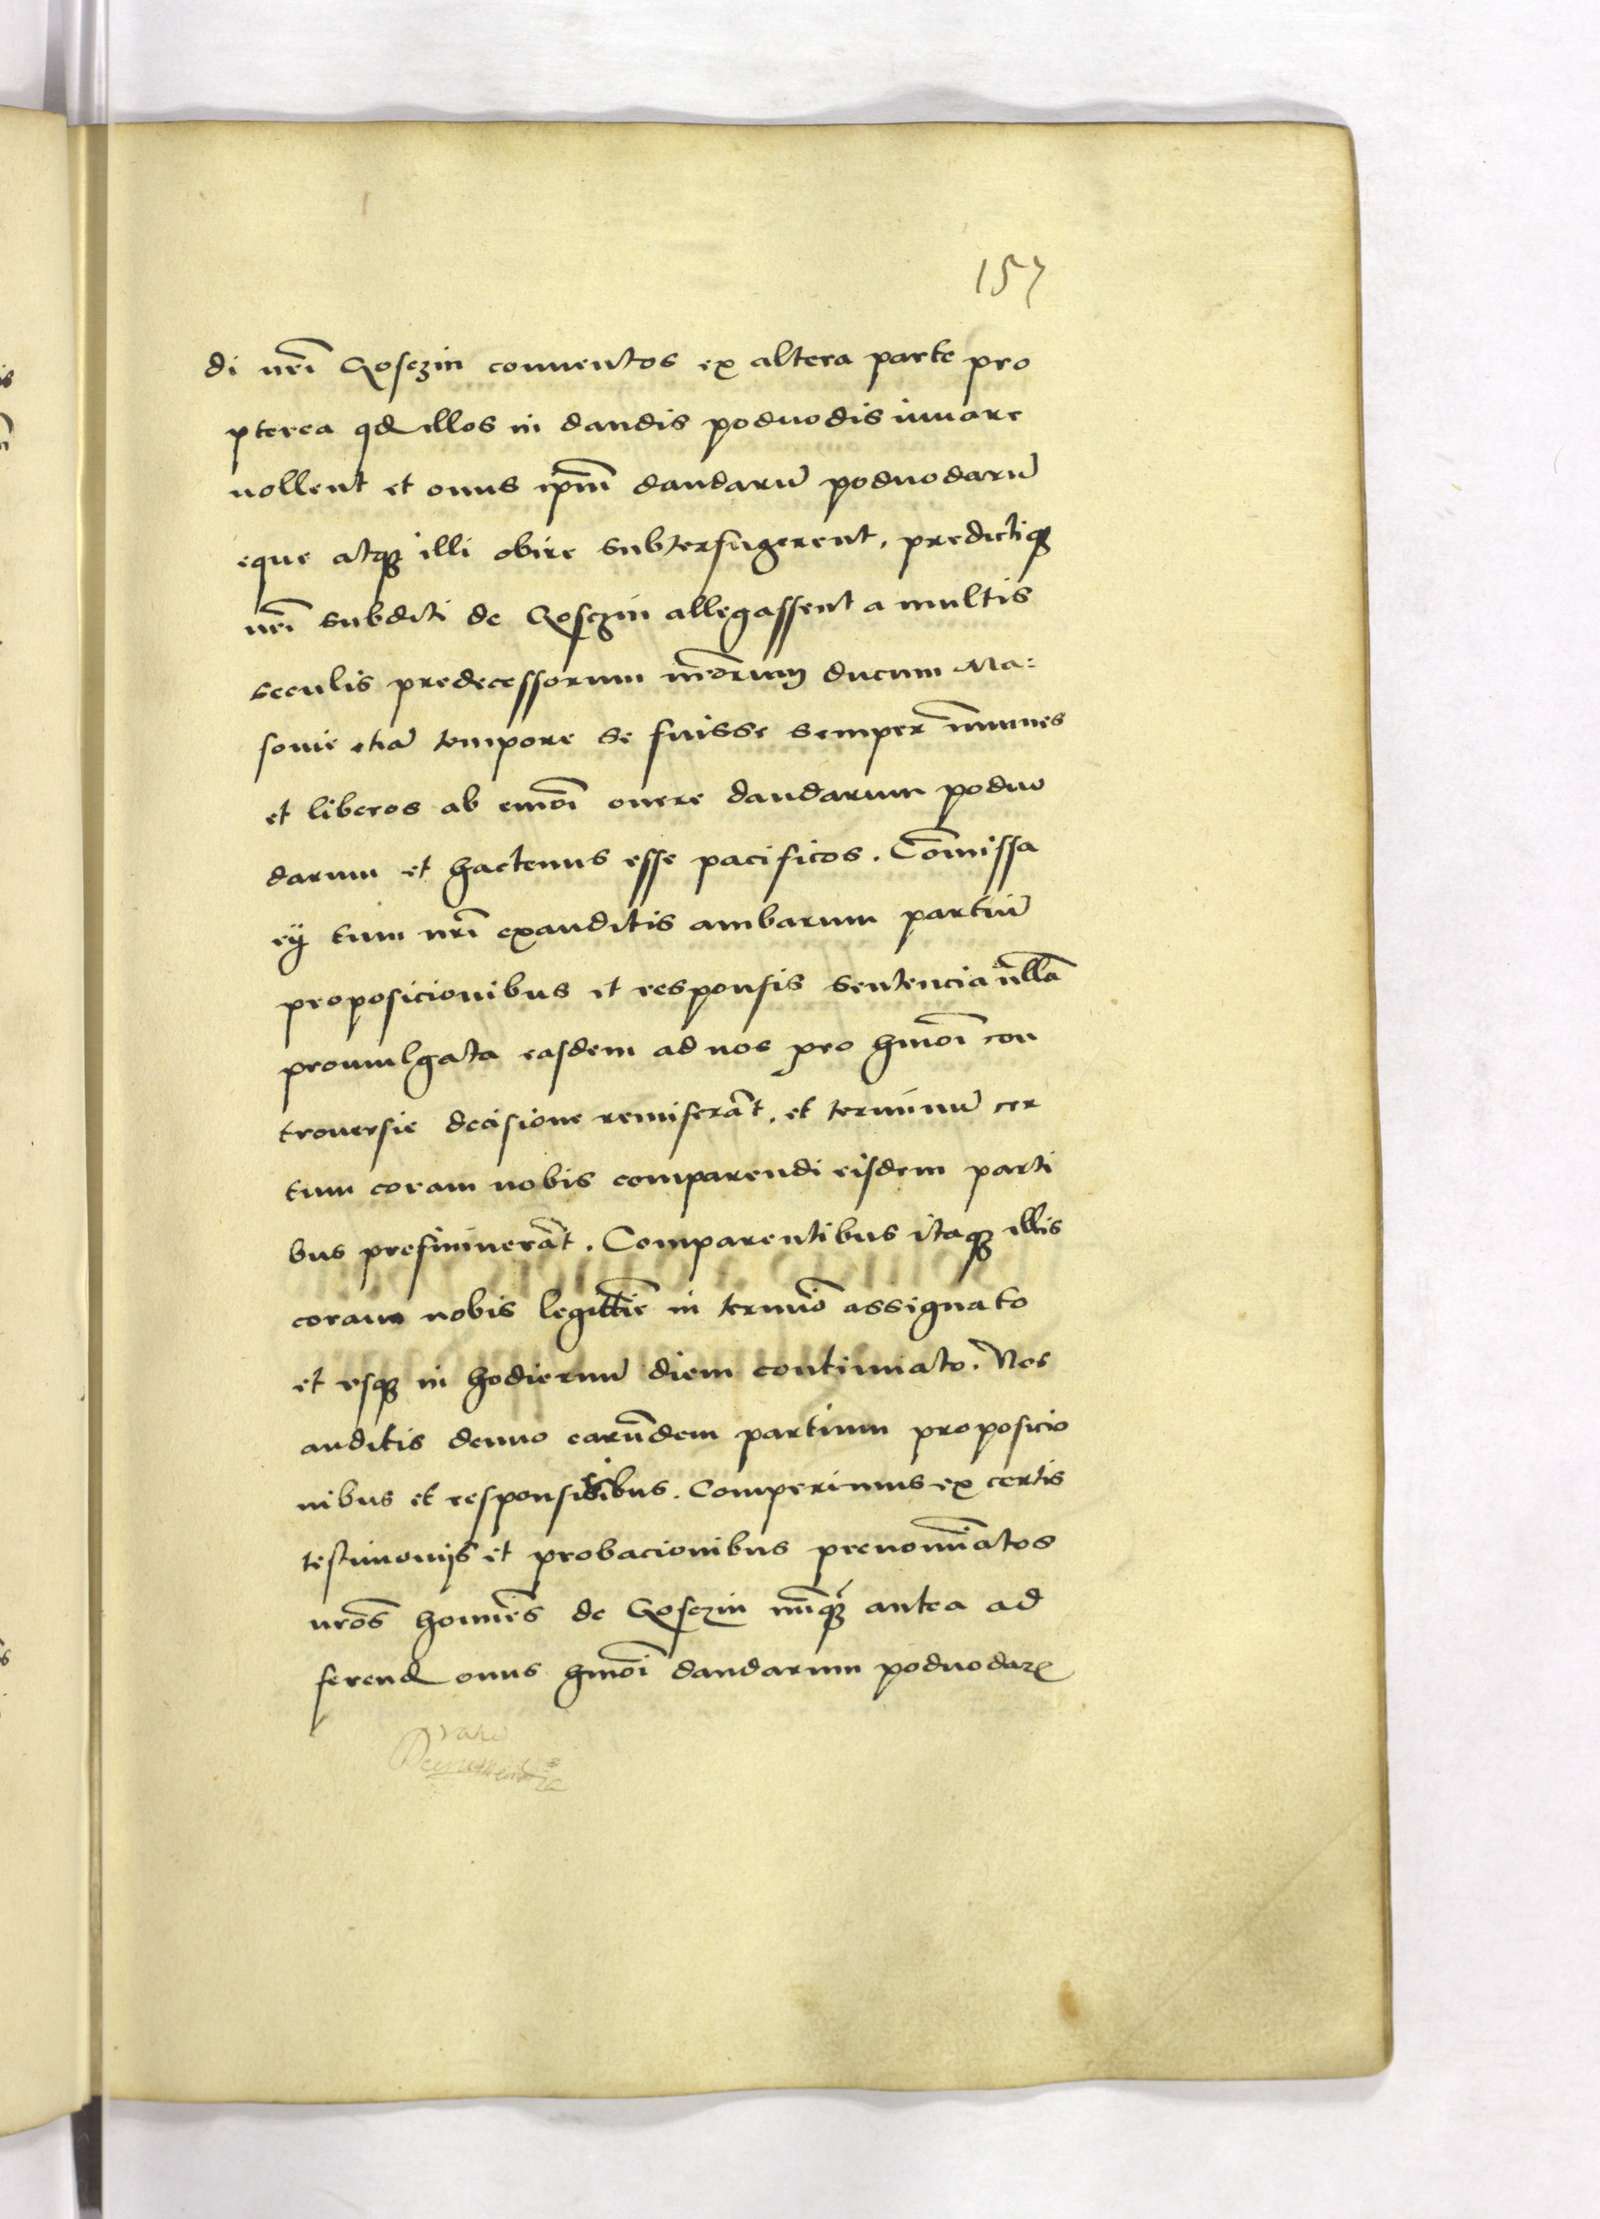 157
di nr̄i Gosczin conuentos ex altera parte pro
pterea qd illos in dandis poduodis iuuare
nollent et onus ip̄m dandarū poduodarū
eque atq; illi obire subterfugerent, predictiq;
nr̄i subditi de Gosczin allegassent a multis
seculis predecessorum nr̄orum ducum Ma:
souie etiā tempore se fuisse semper īmunes
et liberos ab eiusmōi onere dandarum poduo
darum et hactenus esse pacificos. Com̄issa
rij tum nr̄i exauditis ambarum partiū
proposicionibus et responsis sentencia nulla
promulgata easdem ad nos pro hmōi con
trouersie decisione remiserāt, et terminū cer
tum coram nobis comparendi eisdem parti
bus prefiniuerāt. Comparentibus itaq; illis
coram nobis legittiē in termīo assignato
et vsq; in hodiernū diem continuato. Nos
auditis denuo earūdem partium proposicio
nibus et responsibus. Comperimus ex certis
testimonijs et probacionibus prenomīatos
nr̄os homīes de Gosczin nūq; antea ad
ferend onus hmōi dandarum poduodar